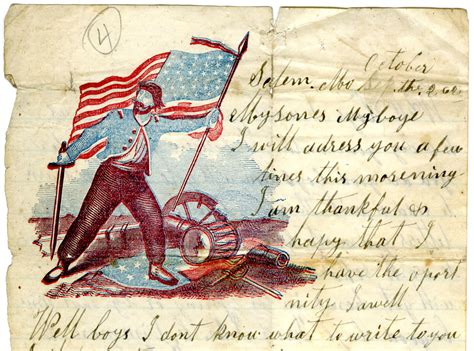 4
October
Salem Mo th 62
My sones My boye
I will adress you a few
lines this morening
I am thankful &
hapy that I
have the oport
nity
Well boys I dont know what to write to you